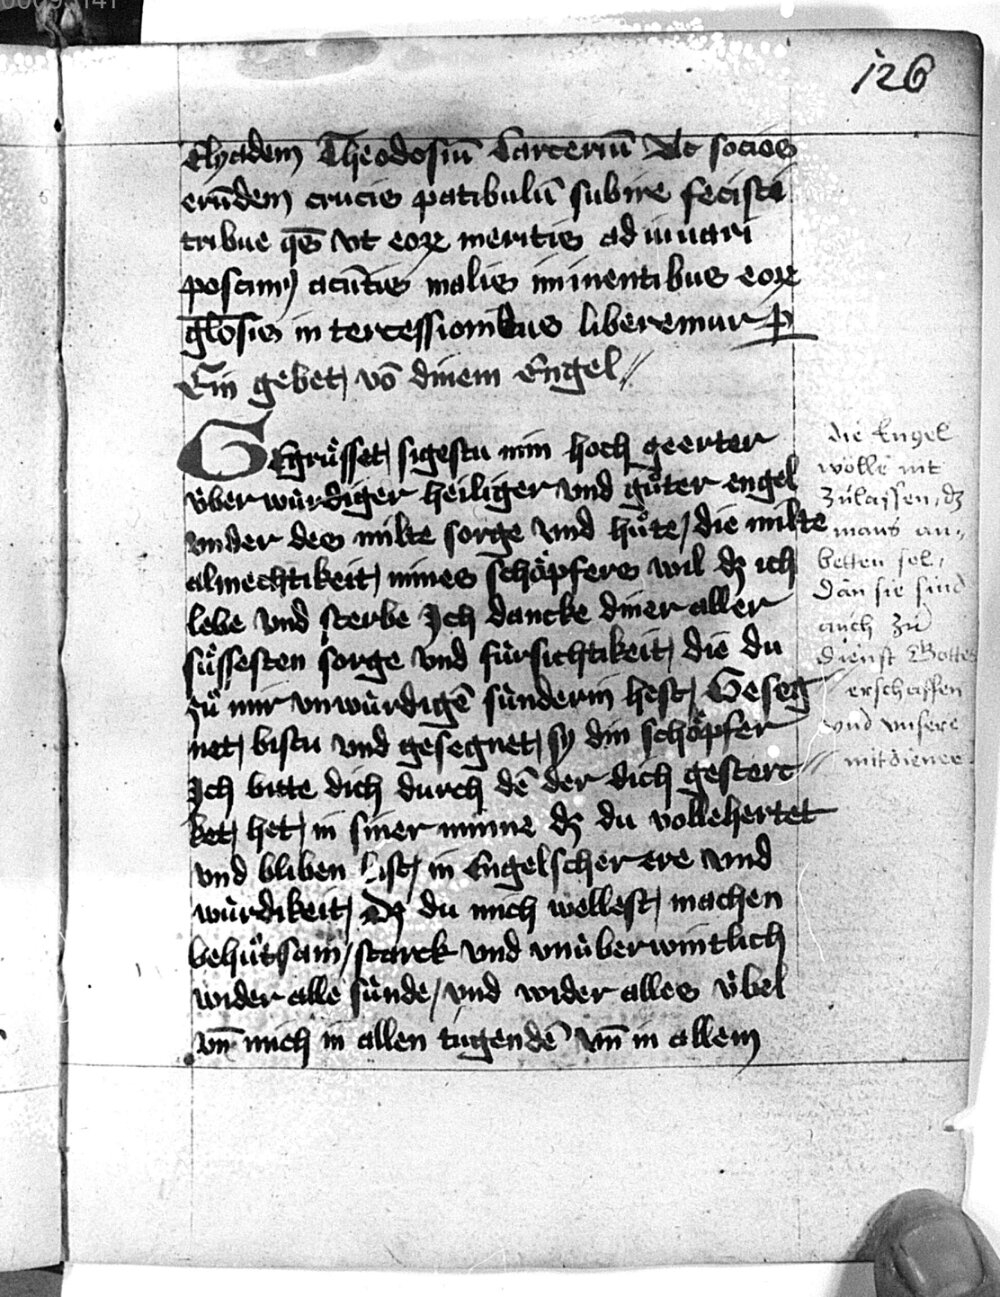 126
Elyadem Theodosiū Carteriū Ac socios
erūdem crucis patibulū subire fecisti
tribue qs̄ vt eoꝝ meritis ad iuuari
poscimꝰ acūtis malis im inentibus eoꝝ
gl̄osis in tercessionibus liberemur P̄
Ein gebet vō dinem Engel //
GEgrüsset sigestu min hoch geerter
über würdiger heiliger vnd gůter engel
vnder des milte sorge vnd hůte / die milte
almechtikeit mines schöpfers wil dz ich
lebe vnd sterbe Ich dancke diner aller
süssesten sorge vnd fürsichtikeit die du
zů mir vnwürdigē sünderin hest Geseg //
net bistu vnd gesegnet sy din schöpfer
Ich bitte dich durch dē der dich gesterc //
ket het in siner minne dz du vollehertet
vnd bliben bist in Engelscher ere vnd
würdikeit Dz du mich wellest machen
behůtsam / starck vnd vnüberwintlich
wider alle sünde / vnd wider alles übel
vn̄ mich in allen tugendē vn̄ in allem
die Engel
wölle nit
zůlassen, dz
mans an-
betten sol,
Dan sie sind
auch zů
dienst Gottes
erschaffen
vnd vnsere
mitdiener